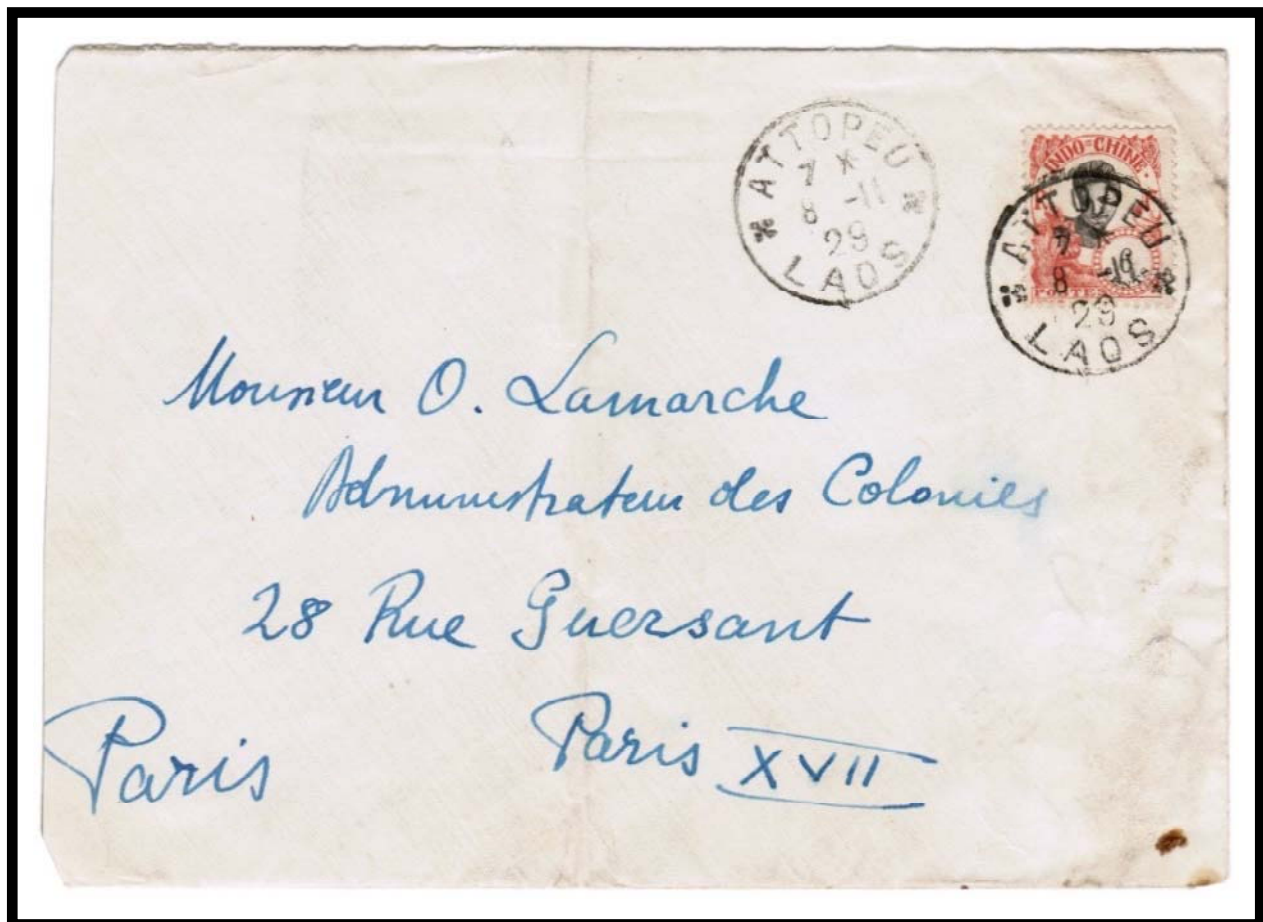 ATTOPEU
7 *
8 -11
29
LAOS
INDO=CHINE
POSTES
ATTOPEU
7 *
8 -11
29
LAOS
Monsieur O. Lamarche
Administrateur des Colonies
28 Rue Guersant
Paris
Paris XVII